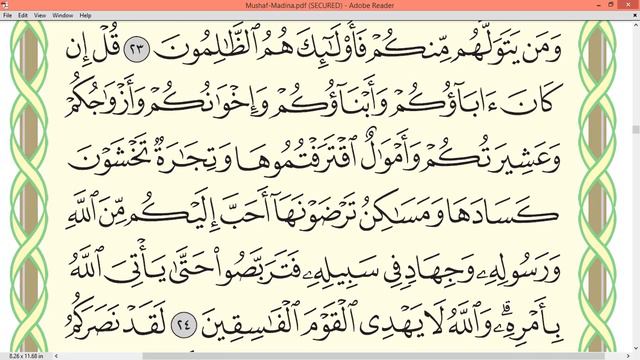 Mushaf-Madina.pdf (SECURED) - Adobe Reader
File Edit View Window Help
وَمَن يَتَوَلَّهُم مِّنكُمْ فَأُو۟لَٰٓئِكَ هُمُ ٱلظَّٰلِمُونَ ٢٣ قُلْ إِن
كَانَ ءَابَآؤُكُمْ وَأَبْنَآؤُكُمْ وَإِخْوَٰنُكُمْ وَأَزْوَٰجُكُمْ
وَعَشِيرَتُكُمْ وَأَمْوَٰلٌ ٱقْتَرَفْتُمُوهَا وَتِجَٰرَةٌ تَخْشَوْنَ
كَسَادَهَا وَمَسَٰكِنُ تَرْضَوْنَهَآ أَحَبَّ إِلَيْكُم مِّنَ ٱللَّهِ
وَرَسُولِهِۦ وَجِهَادٍ فِى سَبِيلِهِۦ فَتَرَبَّصُوا۟ حَتَّىٰ يَأْتِىَ ٱللَّهُ
بِأَمْرِهِۦ ۗ وَٱللَّهُ لَا يَهْدِى ٱلْقَوْمَ ٱلْفَٰسِقِينَ ٢٤ لَقَدْ نَصَرَكُمُ
8.26 x 11.68 in